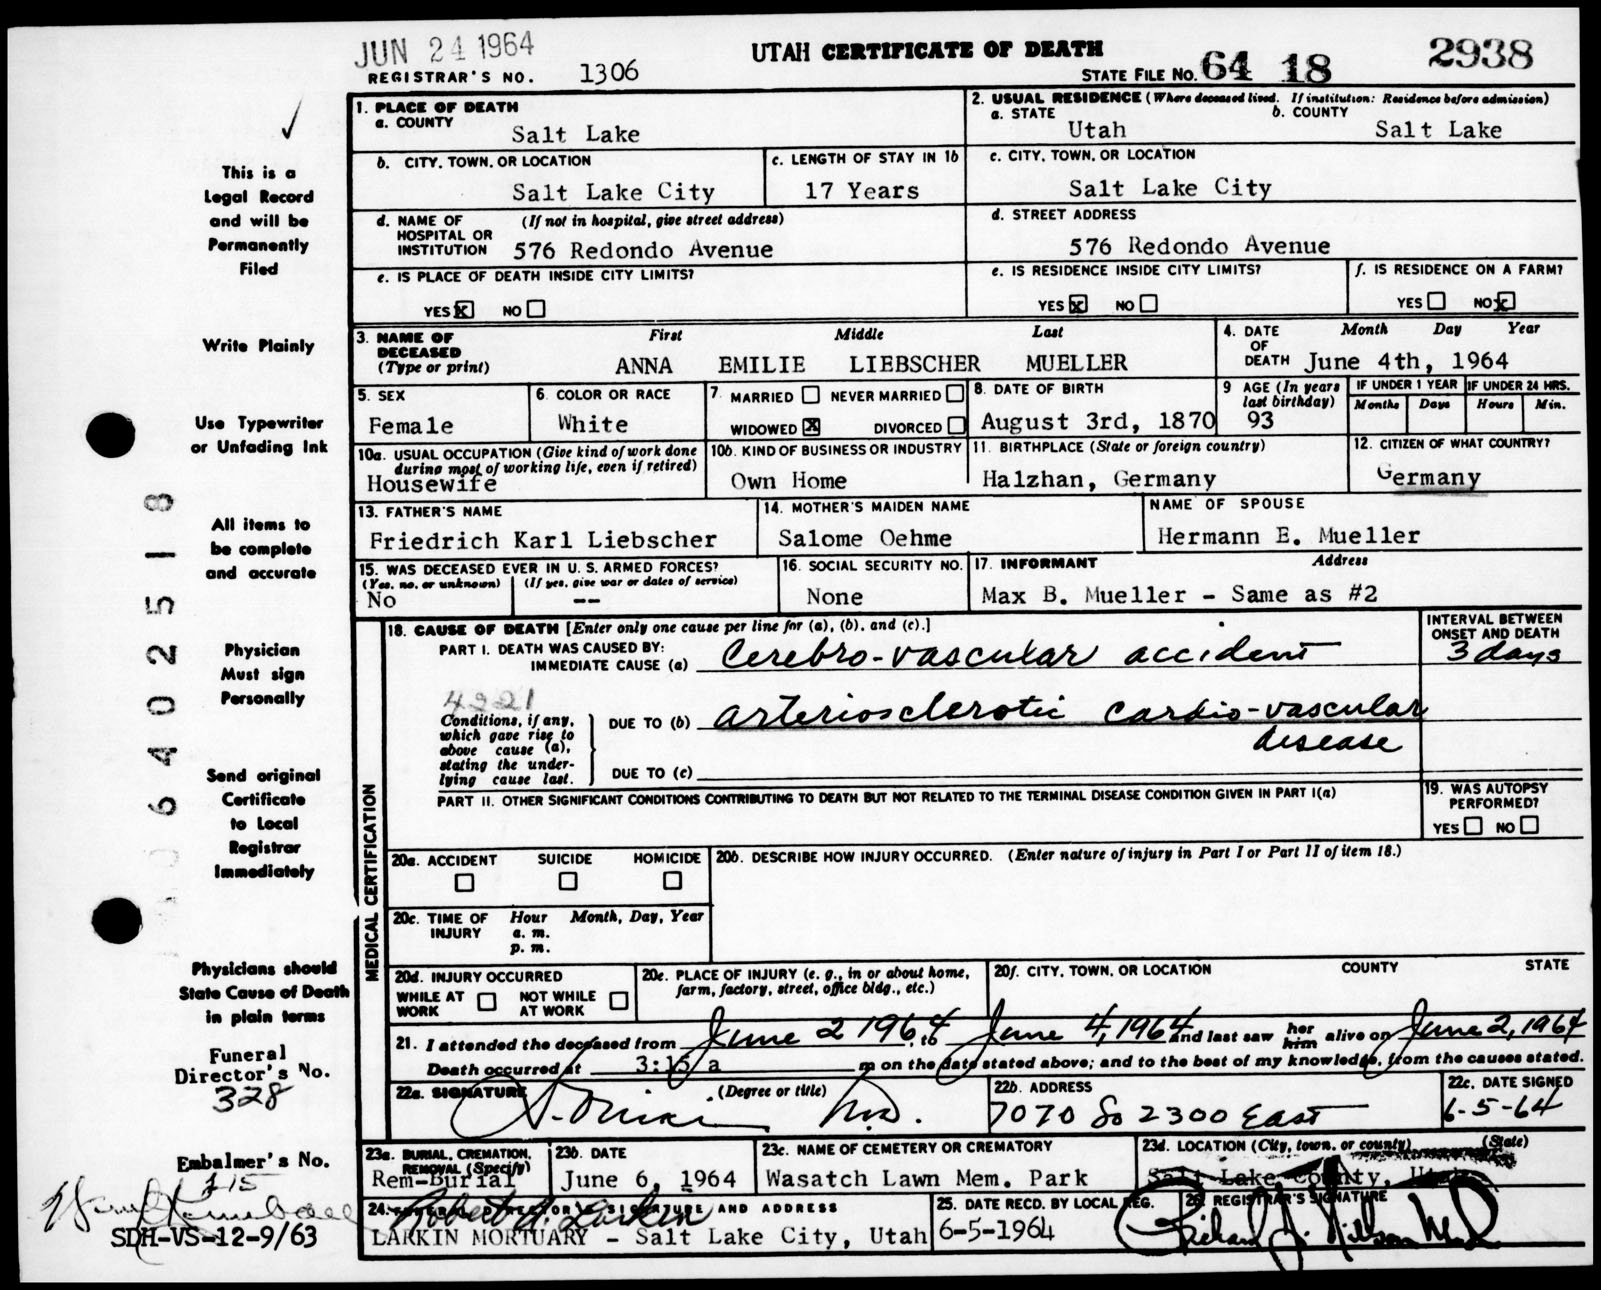 JUN 24 1964
UTAH CERTIFICATE OF DEATH
REGISTRAR'S NO. 1306
STATE FILE NO. 64 18 2938
This is a
Legal Record
and will be
Permanently
Filed
Write Plainly
Use Typewriter
or Unfading Ink
All items to
be complete
and accurate
Physician
Must sign
Personally
Send original
Certificate
to Local
Registrar
Immediately
Physicians should
State Cause of Death
in plain terms
Funeral
Director's No.
328
Embalmer's No.
215
SDH-VS-12-9/63
64 02518
1. PLACE OF DEATH
a. COUNTY
Salt Lake
2. USUAL RESIDENCE (Where deceased lived. If institution: Residence before admission)
a. STATE Utah b. COUNTY Salt Lake
b. CITY, TOWN, OR LOCATION
Salt Lake City
c. LENGTH OF STAY IN 1b
17 Years
c. CITY, TOWN, OR LOCATION
Salt Lake City
d. NAME OF HOSPITAL OR INSTITUTION (If not in hospital, give street address)
576 Redondo Avenue
d. STREET ADDRESS
576 Redondo Avenue
e. IS PLACE OF DEATH INSIDE CITY LIMITS?
YES X NO
e. IS RESIDENCE INSIDE CITY LIMITS?
YES X NO
f. IS RESIDENCE ON A FARM?
YES NO X
3. NAME OF DECEASED (Type or print) First Middle Last
ANNA EMILIE LIEBSCHER MUELLER
4. DATE OF DEATH Month Day Year
June 4th, 1964
5. SEX
Female
6. COLOR OR RACE
White
7. MARRIED NEVER MARRIED
WIDOWED X DIVORCED
8. DATE OF BIRTH
August 3rd, 1870
9 AGE (In years last birthday)
93
IF UNDER 1 YEAR IF UNDER 24 HRS.
Months Days Hours Min.
10a. USUAL OCCUPATION (Give kind of work done during most of working life, even if retired)
Housewife
10b. KIND OF BUSINESS OR INDUSTRY
Own Home
11. BIRTHPLACE (State or foreign country)
Halzhan, Germany
12. CITIZEN OF WHAT COUNTRY?
Germany
13. FATHER'S NAME
Friedrich Karl Liebscher
14. MOTHER'S MAIDEN NAME
Salome Oehme
NAME OF SPOUSE
Hermann E. Mueller
15. WAS DECEASED EVER IN U. S. ARMED FORCES?
(Yes, no, or unknown) (If yes, give war or dates of service)
No --
16. SOCIAL SECURITY NO.
None
17. INFORMANT Address
Max B. Mueller - Same as #2
MEDICAL CERTIFICATION
18. CAUSE OF DEATH [Enter only one cause per line for (a), (b), and (c).]
INTERVAL BETWEEN ONSET AND DEATH
PART I. DEATH WAS CAUSED BY:
IMMEDIATE CAUSE (a) Cerebro-vascular accident
3 days
4221
Conditions, if any, which gave rise to above cause (a), stating the underlying cause last.
DUE TO (b) arteriosclerotic cardio-vascular
disease
DUE TO (c)
PART II. OTHER SIGNIFICANT CONDITIONS CONTRIBUTING TO DEATH BUT NOT RELATED TO THE TERMINAL DISEASE CONDITION GIVEN IN PART I(a)
19. WAS AUTOPSY PERFORMED?
YES NO
20a. ACCIDENT SUICIDE HOMICIDE
20b. DESCRIBE HOW INJURY OCCURRED. (Enter nature of injury in Part I or Part II of item 18.)
20c. TIME OF INJURY Hour Month, Day, Year
a. m.
p. m.
20d. INJURY OCCURRED
WHILE AT WORK NOT WHILE AT WORK
20e. PLACE OF INJURY (e. g., in or about home, farm, factory, street, office bldg., etc.)
20f. CITY, TOWN, OR LOCATION COUNTY STATE
21. I attended the deceased from June 2 1964, to June 4, 1964 and last saw her him alive on June 2, 1964
Death occurred at 3:15 a m on the date stated above; and to the best of my knowledge, from the causes stated.
22a. SIGNATURE (Degree or title)
M.D.
22b. ADDRESS
7070 So 2300 East
22c. DATE SIGNED
6-5-64
23a. BURIAL, CREMATION, REMOVAL (Specify)
Rem-Burial
23b. DATE
June 6, 1964
23c. NAME OF CEMETERY OR CREMATORY
Wasatch Lawn Mem. Park
23d. LOCATION (City, town, or county) (State)
Salt Lake County, Utah
24. FUNERAL DIRECTOR'S SIGNATURE AND ADDRESS
Robert A. Larkin
LARKIN MORTUARY - Salt Lake City, Utah
25. DATE RECD. BY LOCAL REG.
6-5-1964
26. REGISTRAR'S SIGNATURE
Richard J. Nilson M.D.